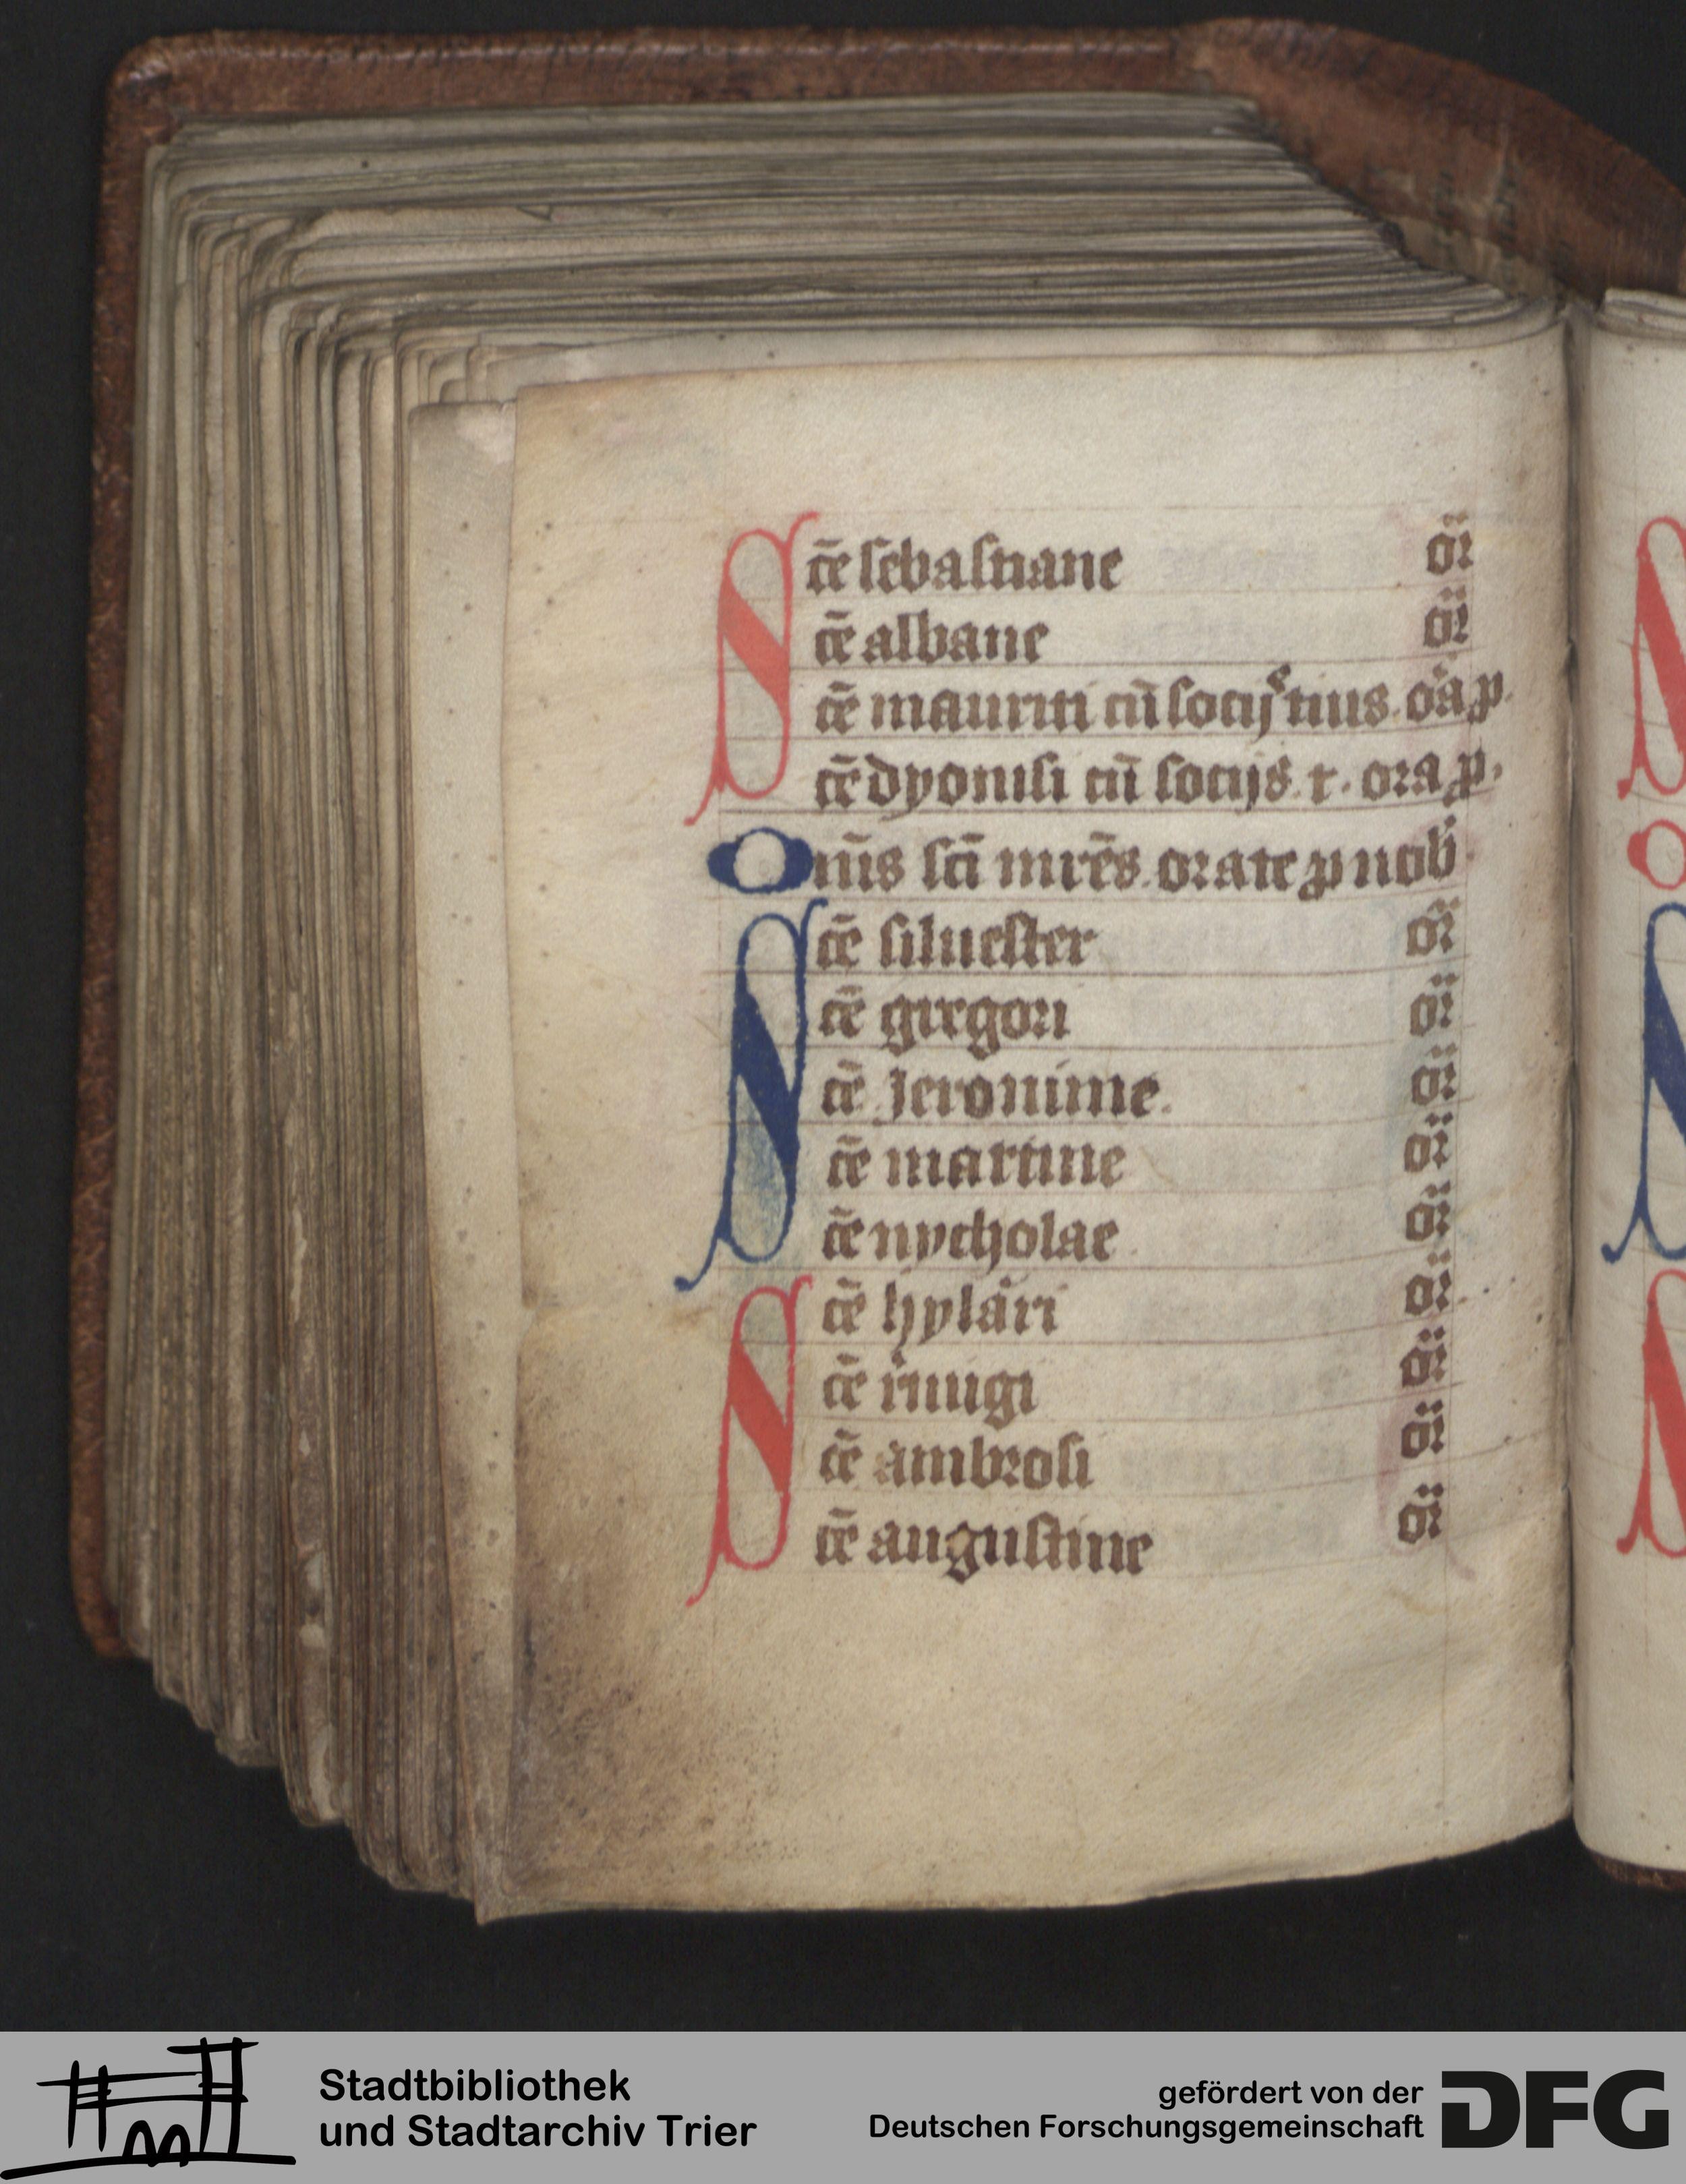 Sc̄e sebastiane or̄
c̄e albane or̄
c̄e mauriti cū socijs tuis ora p
c̄e dyonisi cū socijs t. ora p.
Om̄s sc̄i mr̄es orate p nob
Sc̄e siluester or̄
c̄e girgori or̄
c̄e Jeronime. or̄
c̄e martine or̄
c̄e nycholae or̄
Sc̄e hylari or̄
c̄e rimigi or̄
c̄e ambrosi or̄
c̄e augustine or̄
Stadtbibliothek
und Stadtarchiv Trier
gefördert von der
Deutschen Forschungsgemeinschaft
DFG